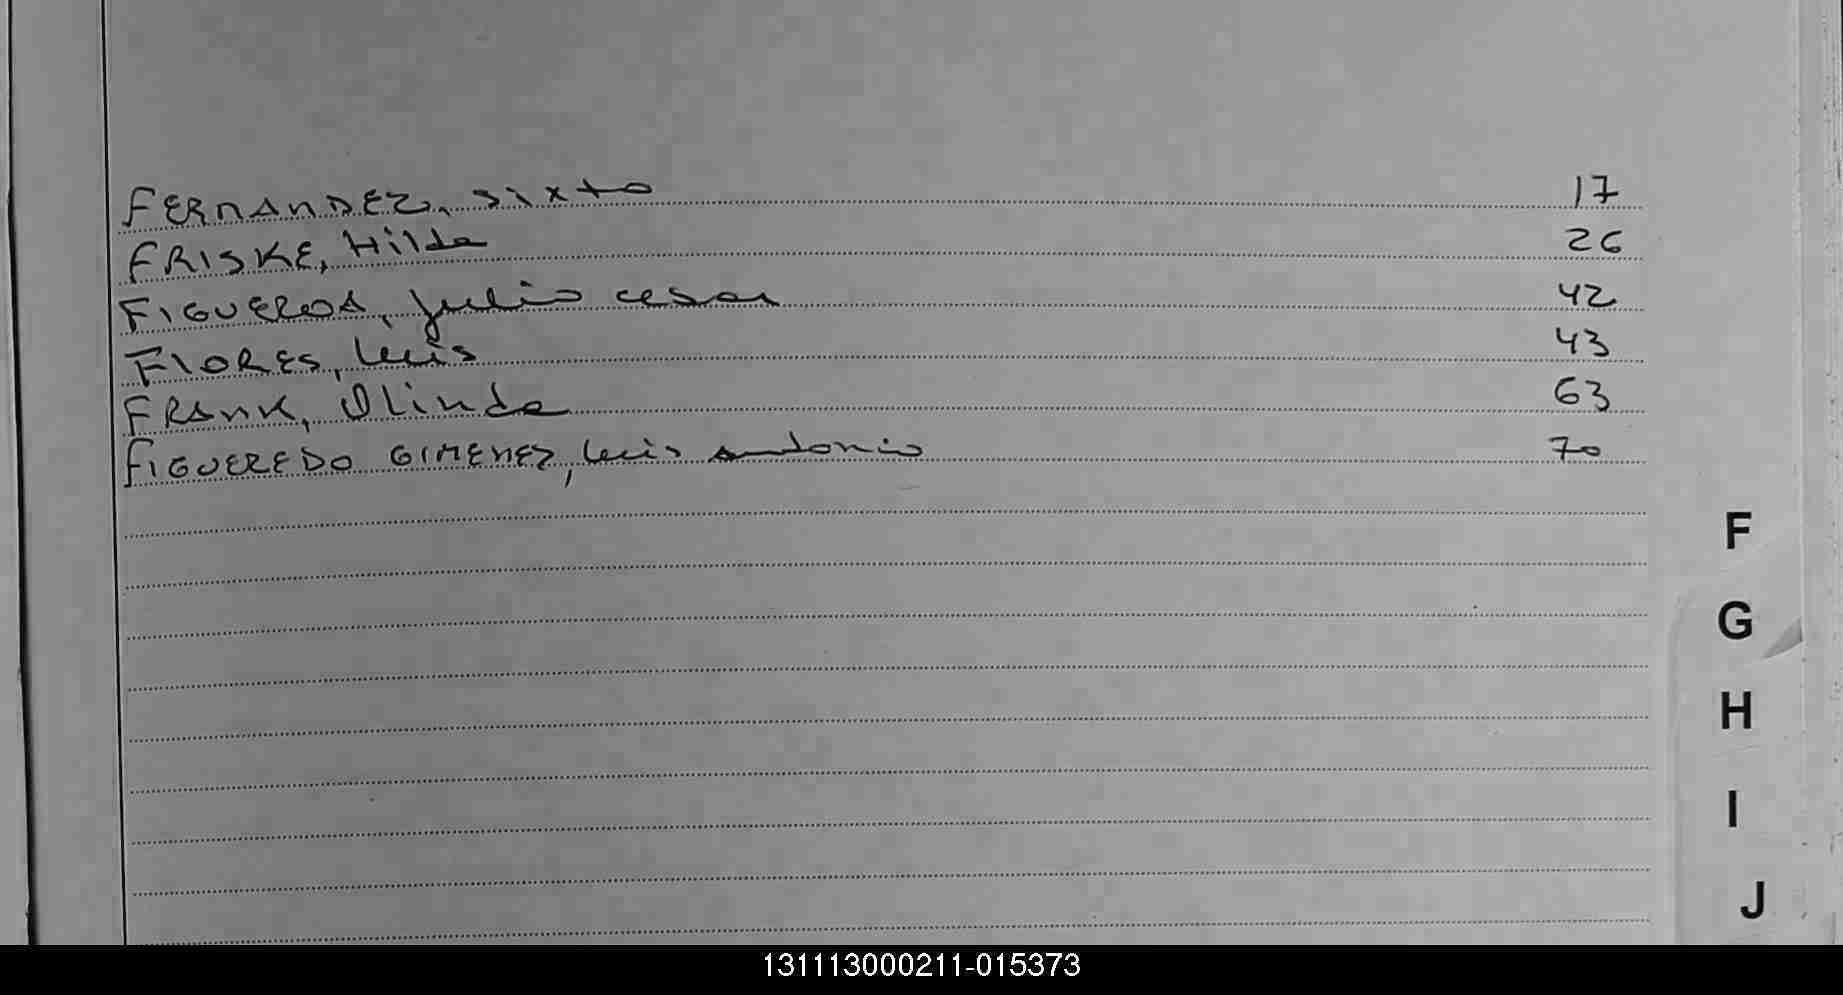 FERNANDEZ, Sixto 17
FRISKE, Hilda 26
FIGUEROA, Julio Cesar 42
FLORES, Luis 43
FRANK, Olinda 63
FIGUEREDO GIMENEZ, Luis Antonio 70
F
G
H
I
J
131113000211-015373